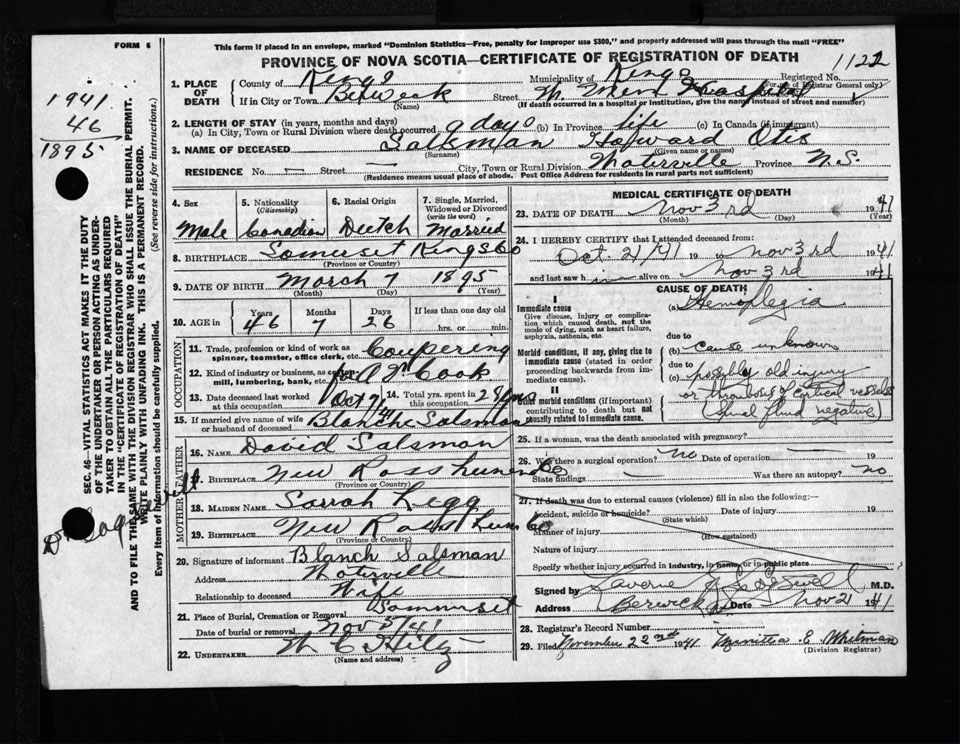 FORM 6
This form if placed in an envelope, marked "Dominion Statistics—Free, penalty for improper use $300," and properly addressed will pass through the mail "FREE"
PROVINCE OF NOVA SCOTIA—CERTIFICATE OF REGISTRATION OF DEATH
1122
1941
46
1895
SEC. 46—VITAL STATISTICS ACT MAKES IT THE DUTY
OF THE UNDERTAKER OR PERSON ACTING AS UNDER-
TAKER TO OBTAIN ALL THE PARTICULARS REQUIRED
IN THE "CERTIFICATE OF REGISTRATION OF DEATH"
AND TO FILE THE SAME WITH THE DIVISION REGISTRAR WHO SHALL ISSUE THE BURIAL PERMIT.
WRITE PLAINLY WITH UNFADING INK. THIS IS A PERMANENT RECORD.
Every item of information should be carefully supplied. (See reverse side for instructions.)
1. PLACE OF DEATH County of Kings Municipality of Kings Registered No.
(For use of Registrar General only)
If in City or Town Berwick Street Hospital
(Name) (If death occurred in a hospital or institution, give the name instead of street and number)
2. LENGTH OF STAY (in years, months and days)
(a) In City, Town or Rural Division where death occurred 9 days (b) In Province life (c) In Canada (if immigrant)
3. NAME OF DECEASED Salsman Howard Otis
(Surname) (Given name or names)
RESIDENCE No. — Street — City, Town or Rural Division Waterville Province N.S.
(Residence means usual place of abode. Post Office Address for residents in rural parts not sufficient)
4. Sex Male
5. Nationality (Citizenship) Canadian
6. Racial Origin Dutch
7. Single, Married, Widowed or Divorced (write the word) Married
8. BIRTHPLACE Somerset Kings Co
(Province or Country)
9. DATE OF BIRTH March 7 1895
(Month) (Day) (Year)
10. AGE in Years 46 Months 7 Days 26 If less than one day old hrs. or min.
OCCUPATION
11. Trade, profession or kind of work as spinner, teamster, office clerk, etc. Coupering
12. Kind of industry or business, as cotton mill, lumbering, bank, etc. Cook
13. Date deceased last worked at this occupation Oct 7/41
14. Total yrs. spent in this occupation 28 yrs
15. If married give name of wife or husband of deceased Blanche Salsman
FATHER
16. NAME David Salsman
17. BIRTHPLACE New Ross Lunenbg
(Province or Country)
MOTHER
18. MAIDEN NAME Sarrah Legg
19. BIRTHPLACE New Ross
(Province or Country)
20. Signature of informant Blanch Salsman
Address Waterville
Relationship to deceased Wife
21. Place of Burial, Cremation or Removal Sommerset
Date of burial or removal Nov
22. UNDERTAKER Hiltz
(Name and address)
MEDICAL CERTIFICATE OF DEATH
23. DATE OF DEATH Nov 3rd 1941
(Month) (Day) (Year)
24. I HEREBY CERTIFY that I attended deceased from
Oct. 21/41 19 to Nov 3rd 1941
and last saw h im alive on Nov 3rd 1941
CAUSE OF DEATH
I
Immediate cause
Give disease, injury or complication which caused death, not the mode of dying, such as heart failure, asphyxia, asthenia, etc.
(a) Hemoplegia
due to
Morbid conditions, if any, giving rise to immediate cause (stated in order proceeding backwards from immediate cause).
(b) cause unknown
due to
(c) possibly old injury
or thrombosis of cortical vessels
(spinal fluid negative)
II
Other morbid conditions (if important) contributing to death but not causally related to immediate cause.
25. If a woman, was the death associated with pregnancy?
26. Was there a surgical operation? no Date of operation — 19
State findings Was there an autopsy? no
27. If death was due to external causes (violence) fill in also the following:—
Accident, suicide or homicide? Date of injury 19
(State which)
Manner of injury
(How sustained)
Nature of injury
Specify whether injury occurred in industry, in home, or in public place
Signed by Laverne M.D.
Address Berwick Date Nov 21 1941
28. Registrar's Record Number
29. Filed November 22nd 1941 E. Whitman
(Division Registrar)